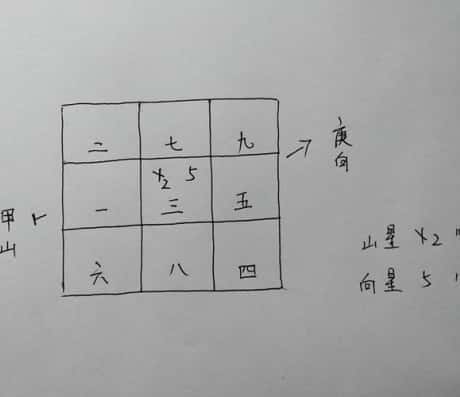 二 七 九
庚向
x2 5
一 三 五
甲山
六 八 四
山星 x2 "
向星 5 '